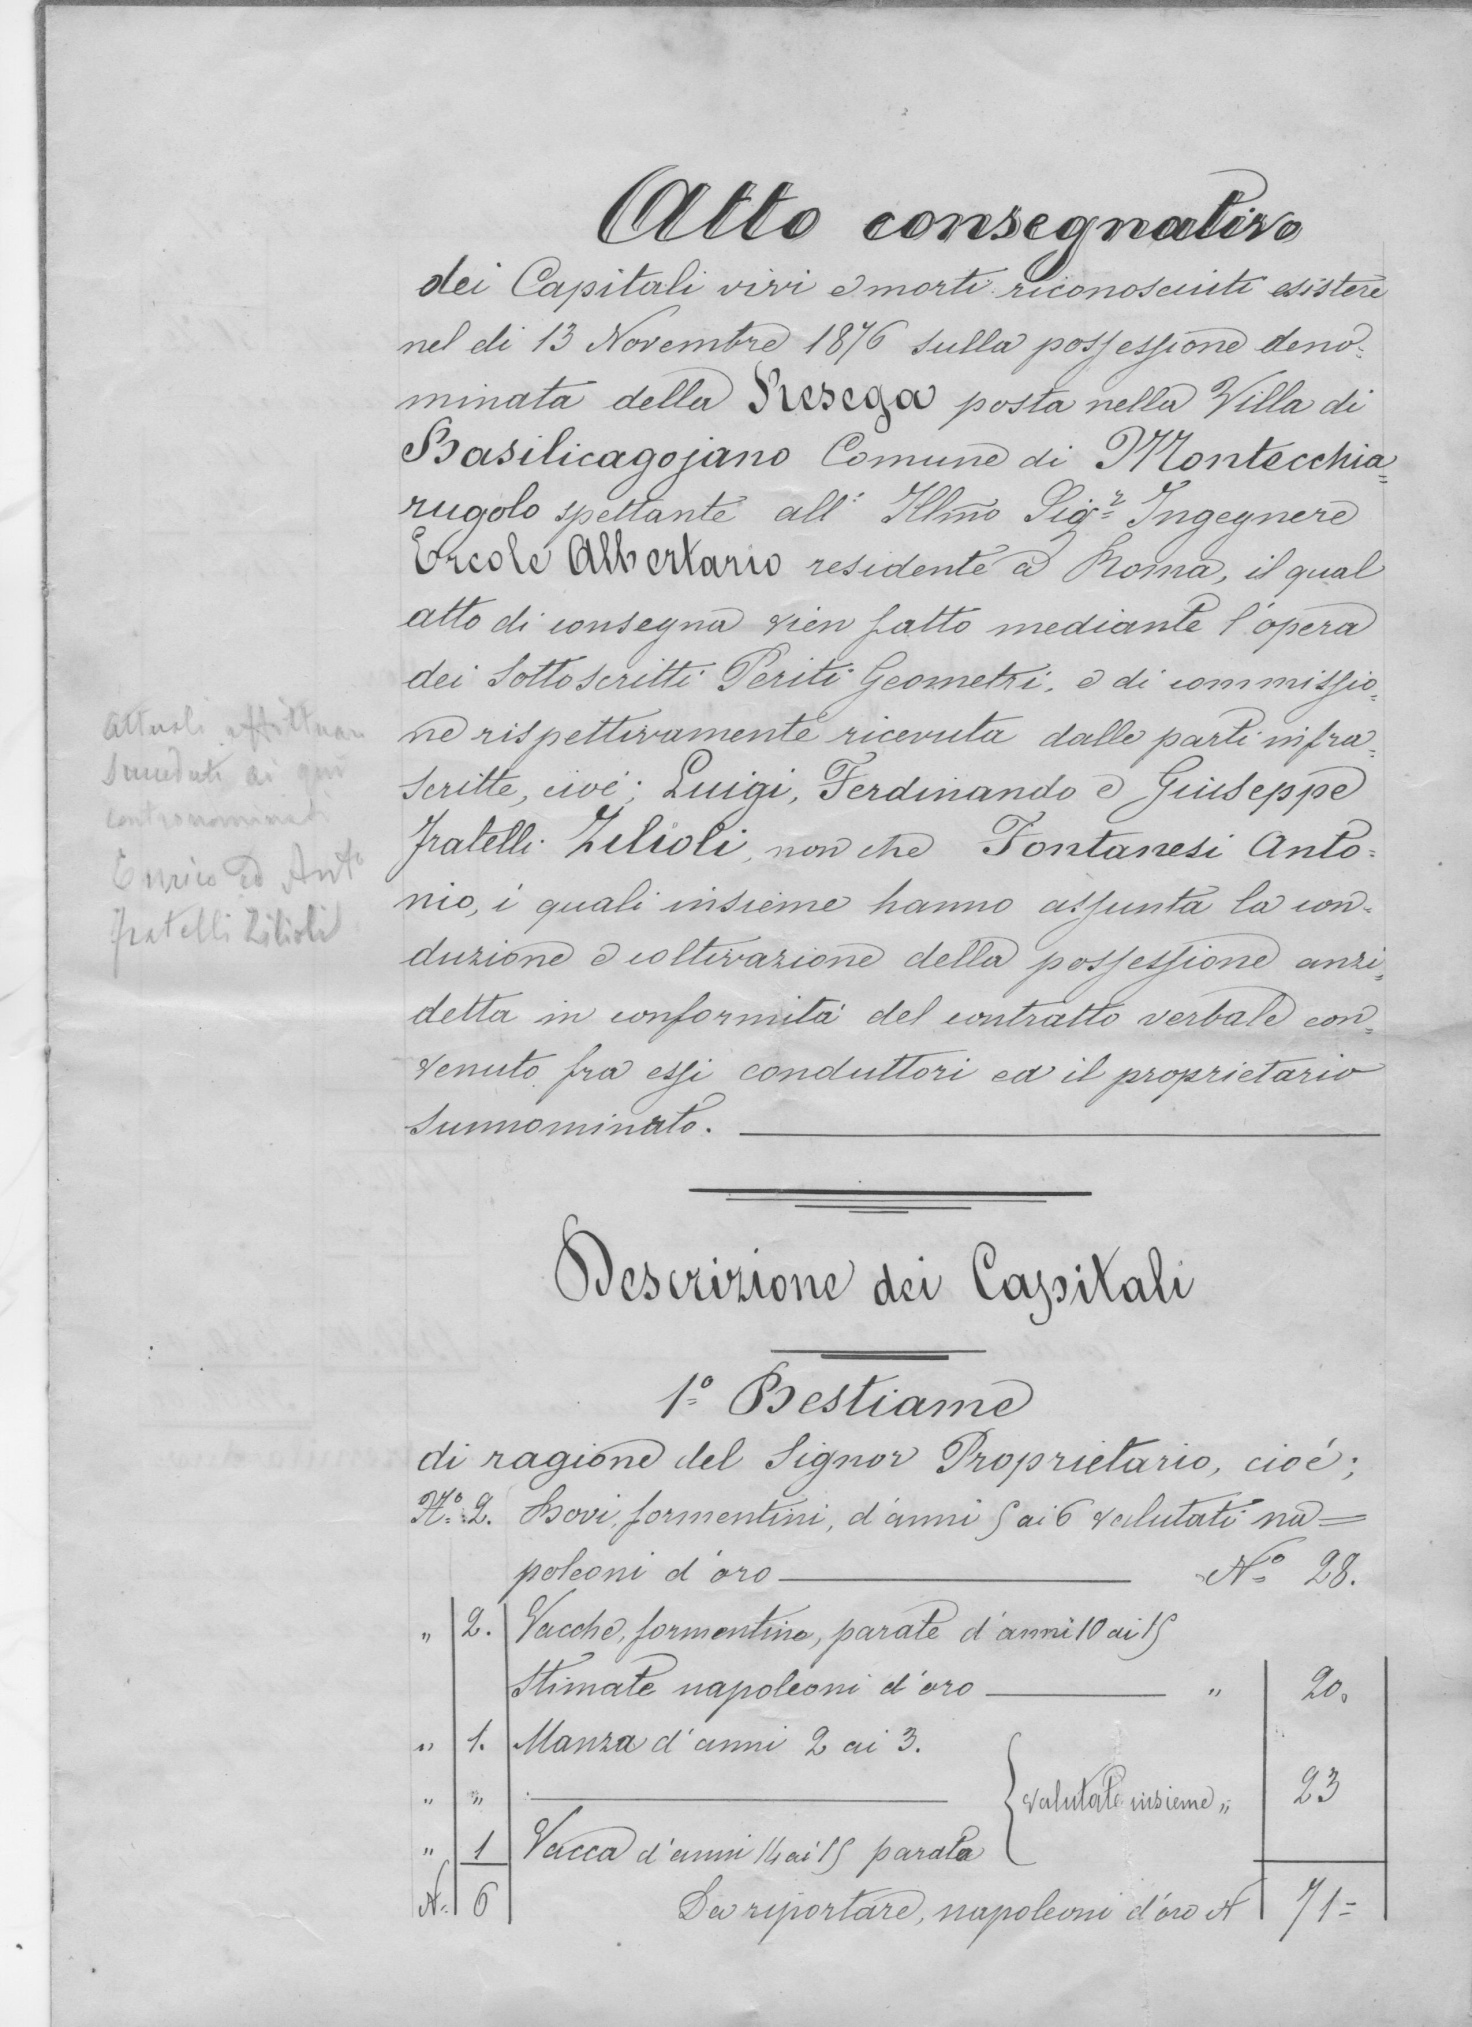 Atto consegnativo
dei Capitali vivi e morti riconosciuti esistere
nel di 13 Novembre 1876 sulla possessione deno=
minata della Resega posta nella Villa di
Basilicagojano Comune di Montecchia=
rugolo spettante all' Illmo Sigr Ingegnere
Ercole Albertario residente a Roma, il qual
atto di consegna vien fatto mediante l'opera
dei Sottoscritti Periti Geometri, e di commissio=
ne rispettivamente ricevuta dalle parti infra=
scritte, cioè; Luigi, Ferdinando e Giuseppe
fratelli Zilioli, non che Fontanesi Anto=
nio, i quali insieme hanno assunta la con=
duzione e coltivazione della possessione anzi=
detta in conformità del contratto verbale con=
venuto fra essi conduttori ed il proprietario
sunnominato.
Attuali affittuari
Succeduti ai qui
contronominati
Enrico ed Anto
fratelli Zilioli
Descrizione dei Capitali
1º Bestiame
di ragione del Signor Proprietario, cioè;
Nº 2. Bovi, formentini, d'anni 5 ai 6 valutati na=
poleoni d'oro Nº 28.
" 2. Vacche, formentine, parate d'anni 10 ai 15
Stimate napoleoni d'oro " 20.
" 1. Manza d'anni 2 ai 3.
" " valutate insieme " 23
" 1 Vacca d'anni 14 ai 15 parata
N. 6 Da riportare, napoleoni d'oro N 71=